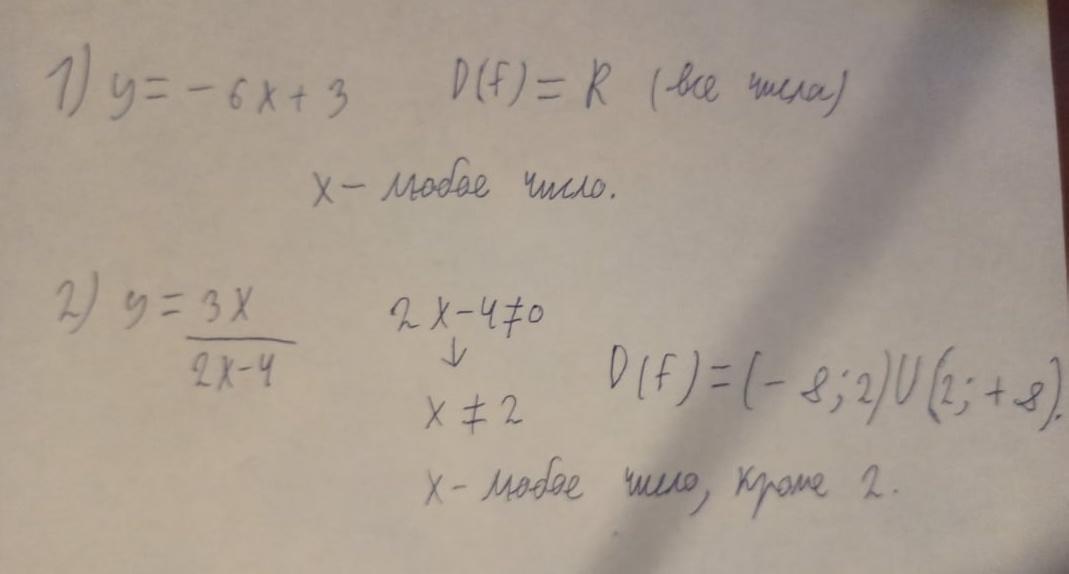 1) y = - 6x + 3 D(f) = R (все числа)
x - любое число.
2) y = 3x / 2x-4
2x-4≠0
↓
x ≠ 2
D(f) = (- 8; 2) U (2; + 8).
x - любое число, кроме 2.